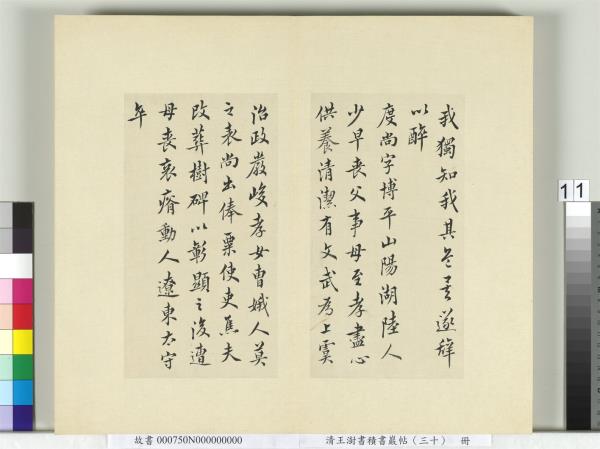 我獨知我其遂
以醉
度尚字博平山陽湖陸人
少早喪父事母至孝盡心
供養清潔有文武為上虞
治政嚴峻孝女曹娥人莫
之表尚出俸粟使吏焦夫
改葬樹碑以彰顯之後遭
母喪哀瘠動人遼東太守
卒
11
故書 000750N000000000 清王澍書積書巖帖（三十） 冊